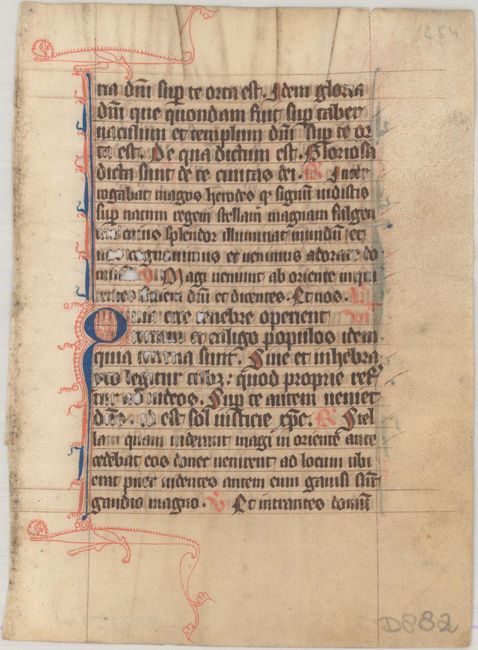 1254
tia dñi sup te orta est. Idem gloria
dñi que quondam fuit sup taber
naculum et templum dñi sup te or
ta est. De qua dictum est. Gloriosa
dicta sunt de te ciuitas dei. R Inter
rogabat magos herodes qd signũ uidistis
sup natum regem stellam magnam fulgen
tem cuius splendor illuminat mundũ et
nos cognouimus et uenimus adorare do
minũ. Magi ueniunt ab oriente inqui
faciem dñi et dicentes. Et nos.
Quia ecce tenebre operient
terram et caligo populos idem
quia terrena sunt. Siue et in hebra
yco legitur quod proprie ref
tur ad iudeos. Sup te autem ueniet
dñs. id est sol iusticie xpc. R Stel
lam quam uiderant magi in oriente ante
cedebat eos donec uenirent ad locum ubi
erat puer uidentes autem eam gauisi sũt
gaudio magno. V Et intrantes domũ
D882